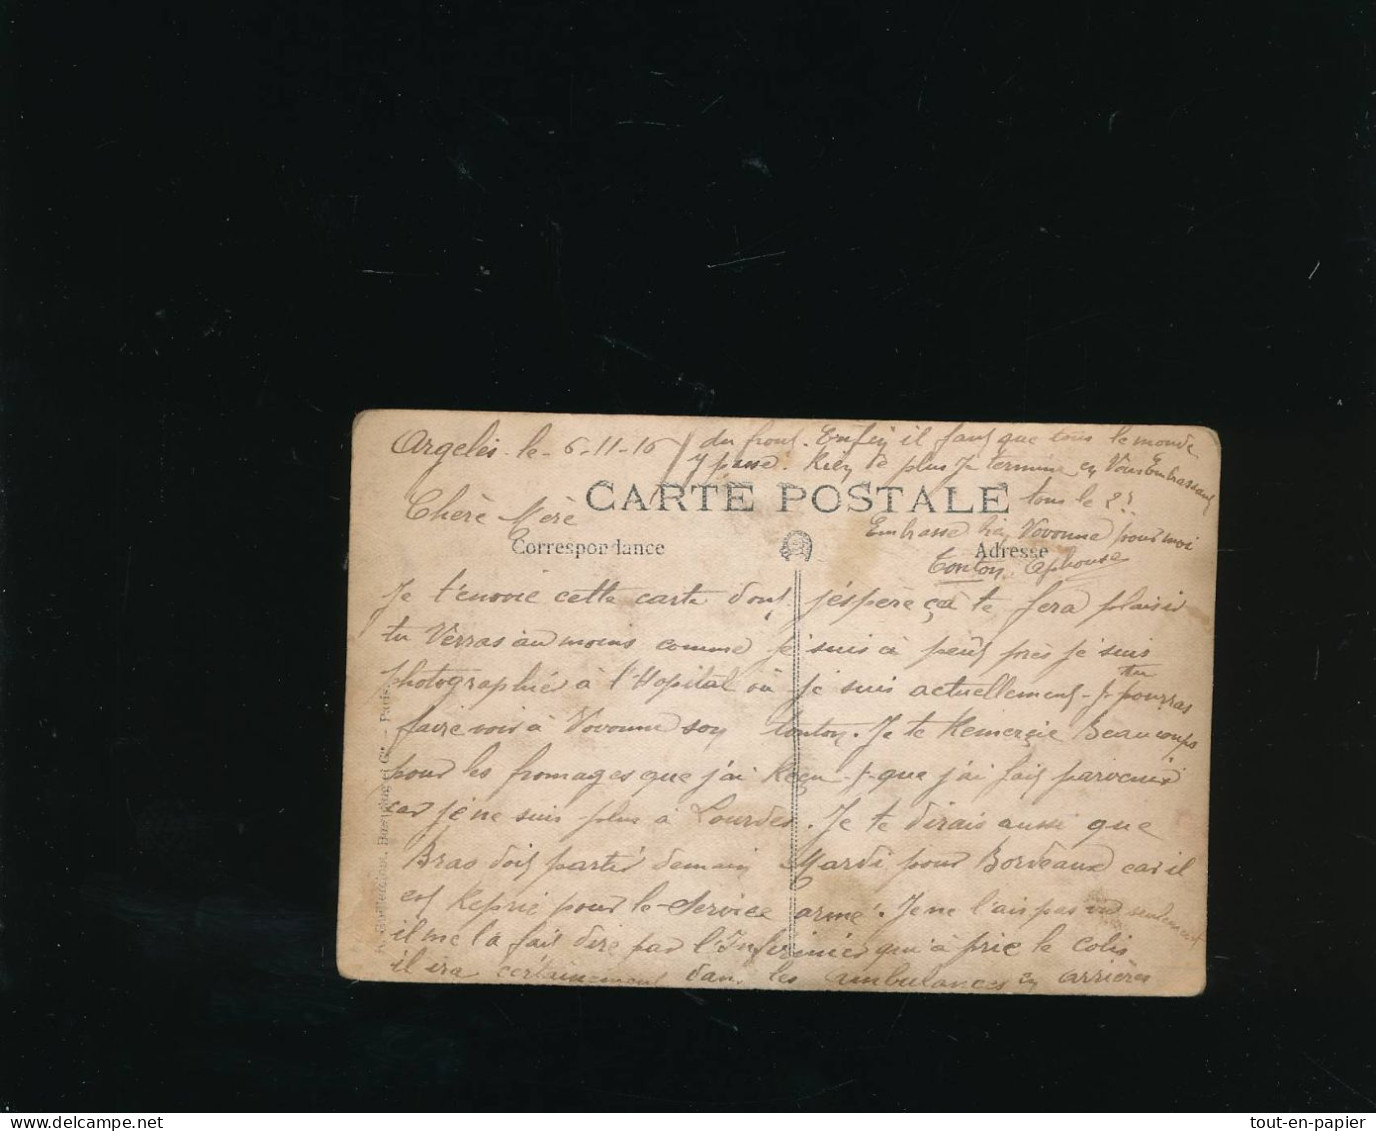 Argelès le 6-11-16
Chère Mère
CARTE POSTALE
Correspondance
Adresse
Je t'envoie cette carte dont j'éspère ça te fera plaisir
tu Verras au moins comme je suis à peut près je suis
photographié à l'Hopital où je suis actuellement tu pourras
faire voir à Vovonne son tonton. Je te Remerçie Beaucoups
pour les fromages que j'ai Reçu que j'ai fait parvenir
car je ne suis plus à Lourdes. Je te dirais aussi que
Bras doit partir demain Mardi pour Bordeaux car il
est Repris pour le Service armé. Je ne l'ais pas vu seulement
il me l'a fait dire par l'Infirmier qu'à pris le colis
il ira certainement dans les ambulances en arrières
du front. Enfin il faut que tous le monde
y passe. Rien de plus Je termine en Vous Embrassant
tous le
Embrasse bien Vovonne pour moi
Tonton Alphonse
Paris.
tout-en-papier